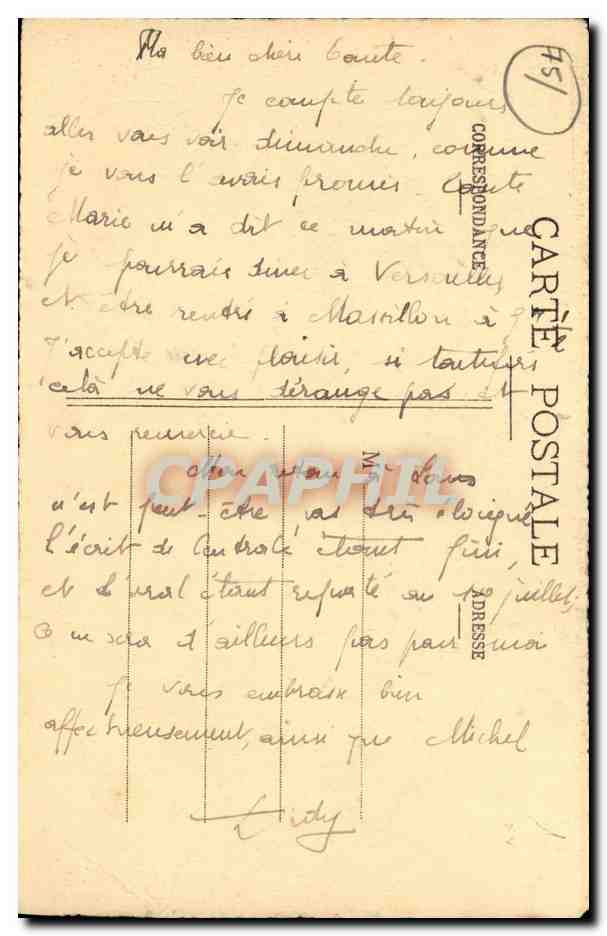 Ma bien chère tante.
75/
Je compte toujours
aller vous voir dimanche, comme
je vous l'avais promis. Tante
Marie m'a dit ce matin que
je pourrais diner à Versailles
et être rentré à Massillon à
J'accepte avec plaisir, si toutefois
cela ne vous dérange pas et
vous remercie.
Mon retour à Lons
n'est peut-être pas très éloigné
l'écrit de Centrale étant fini,
et l'oral étant reporté au 10 juillet;
Ce ne sera d'ailleurs pas pour moi
Je vous embrasse bien
affectueusement, ainsi que Michel
CARTE POSTALE
CORRESPONDANCE
ADRESSE
M
CPAPHIL